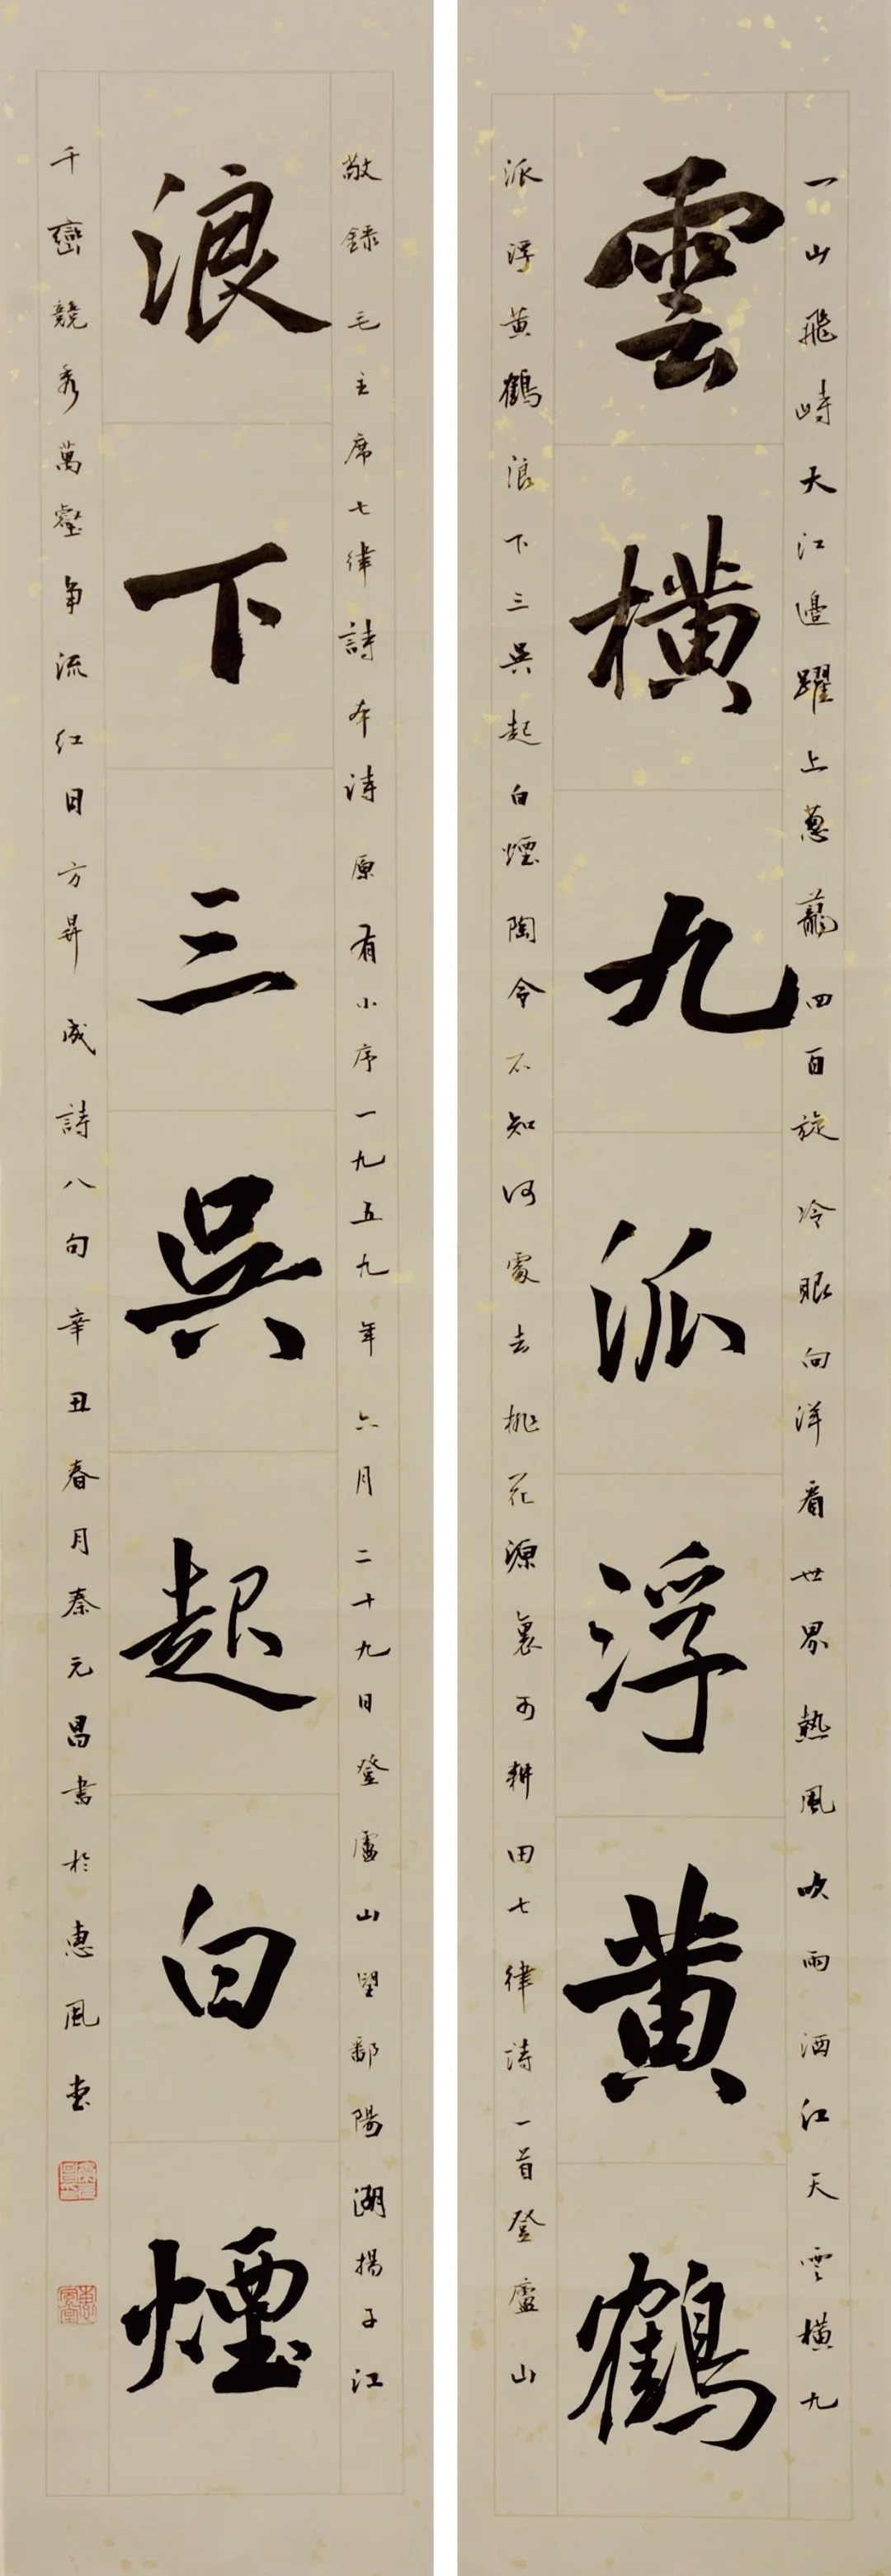 一山飛峙大江邊躍上蔥蘢四百旋冷眼向洋看世界熱風吹雨洒江天雲橫九
雲橫九派浮黄鶴
派浮黄鶴浪下三吳起白煙陶令不知何處去桃花源裏可耕田七律詩一首登廬山
敬録毛主席七律詩本詩原有小序一九五九年六月二十九日登廬山望鄱陽湖揚子江
浪下三吳起白煙
千巒競秀萬壑争流红日方昇成詩八句辛丑春月秦元昌書於惠風堂
惠風堂